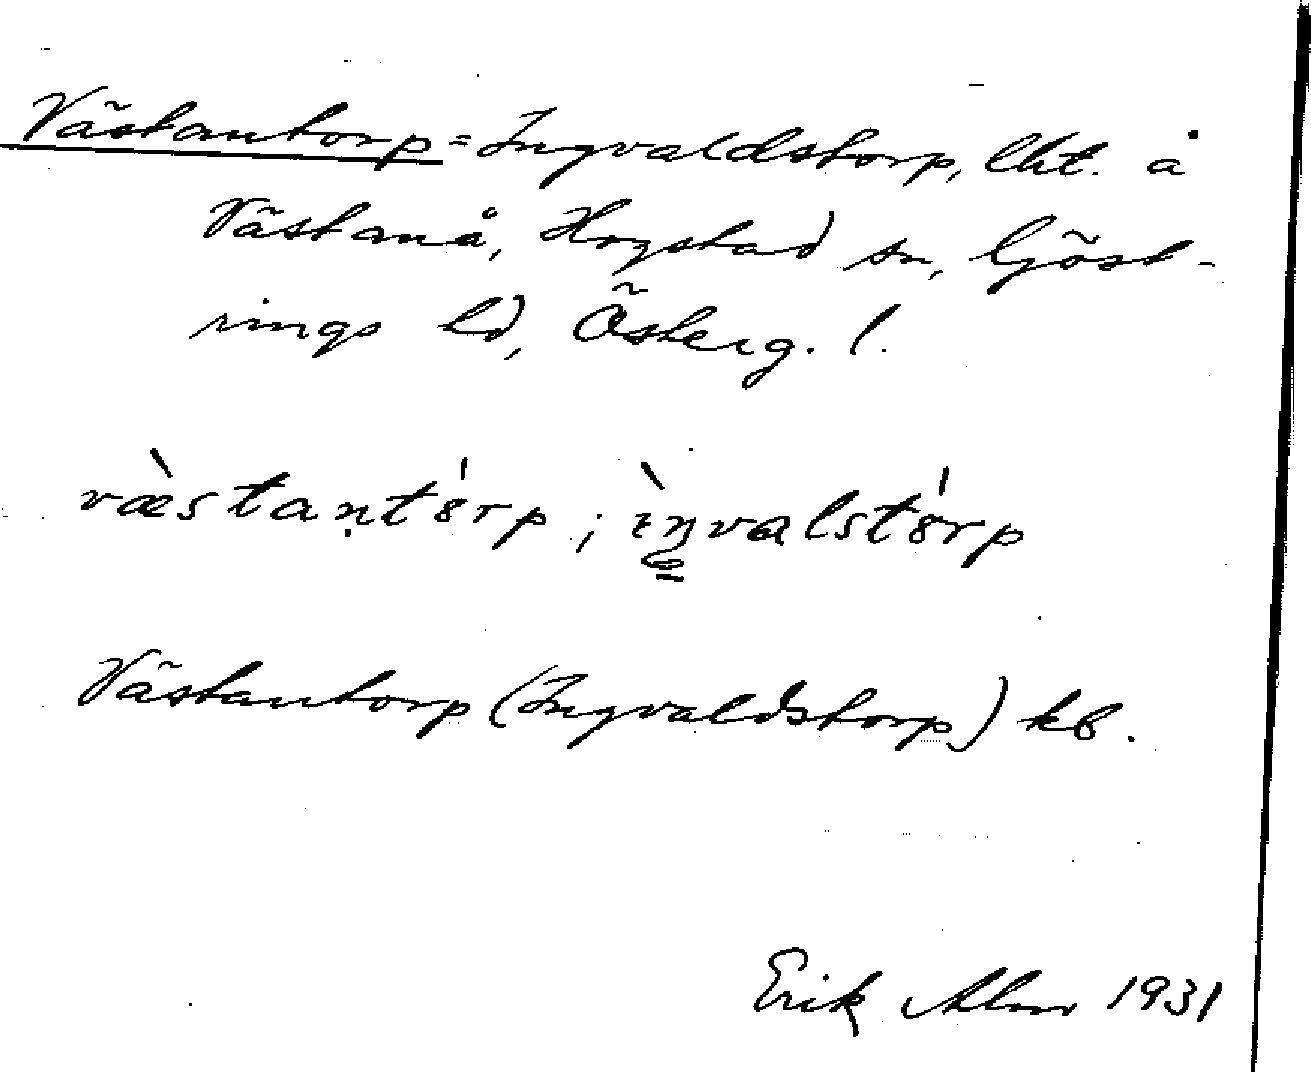 Västantorp = Ingvaldstorp, lht. å
Västanå, Hogstad sn, Göst-
rings hd, Österg. l.
væ̀stant́ɵrp ; ìŋvalst́ɵrp
Västantorp (Ingvaldstorp) kb.
Erik Alm 1931